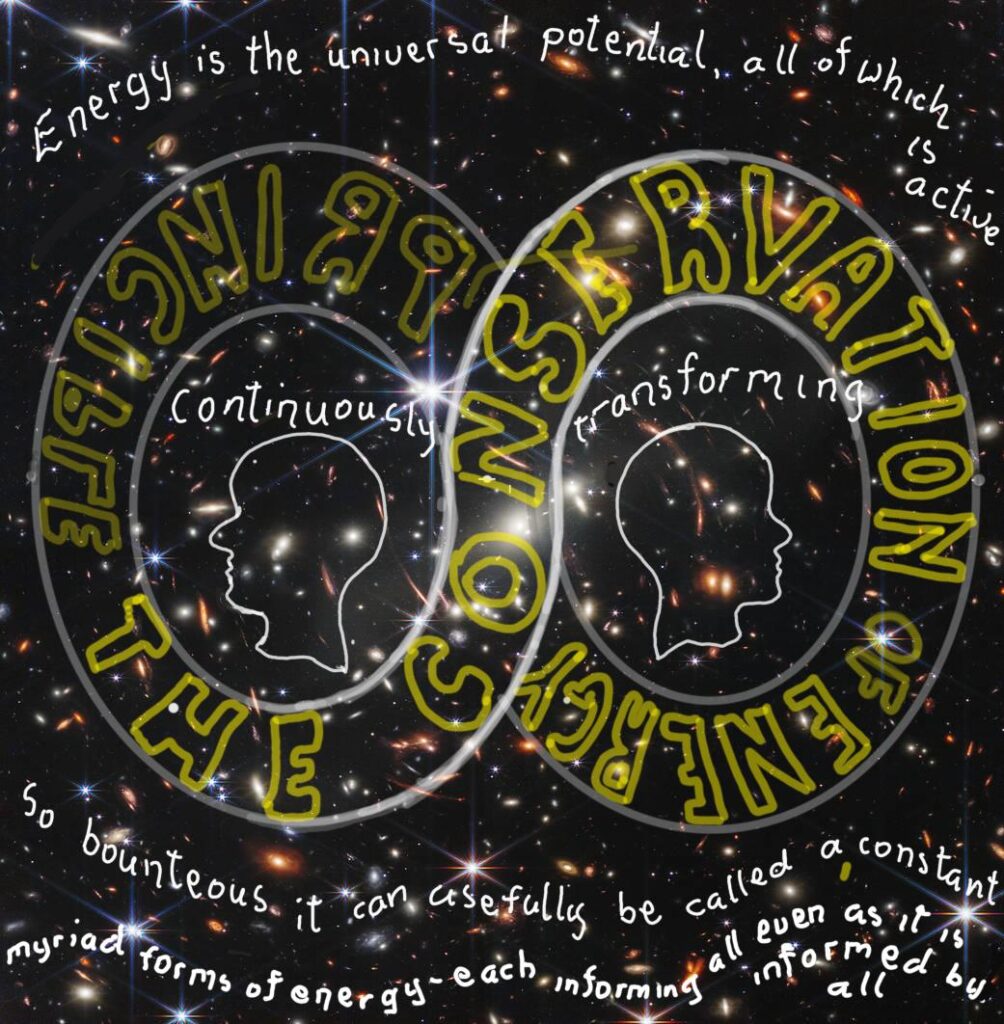 Energy is the universal potential, all of which
is
active
THE CONSERVATION OF ENERGY PRINCIPLE
Continuously transforming
So bounteous it can usefully be called a constant
myriad forms of energy-each informing all even as it is
informed by
all